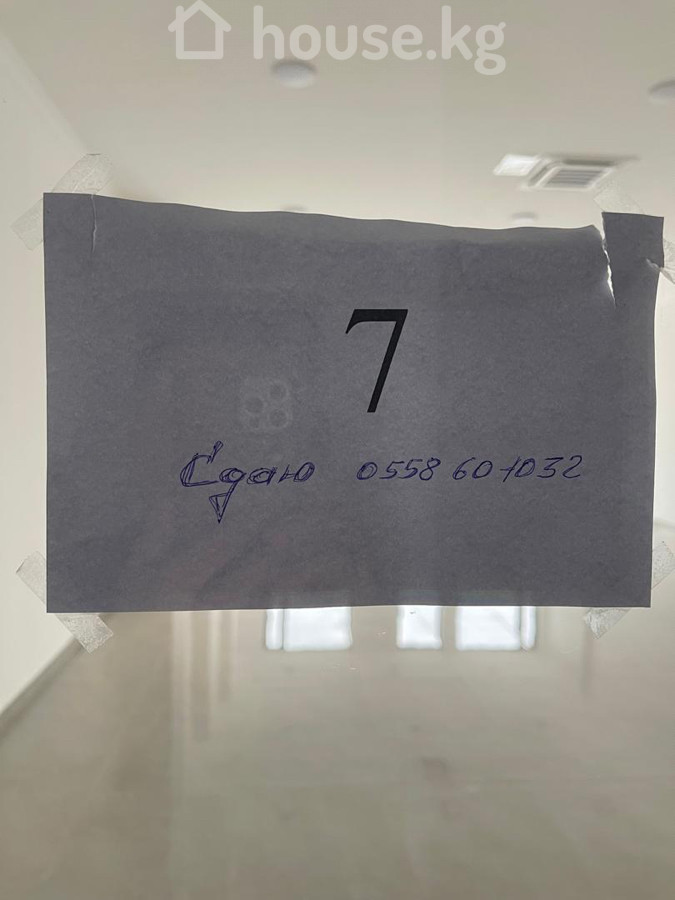 house.kg
7
Сдаю 0558 60 1032